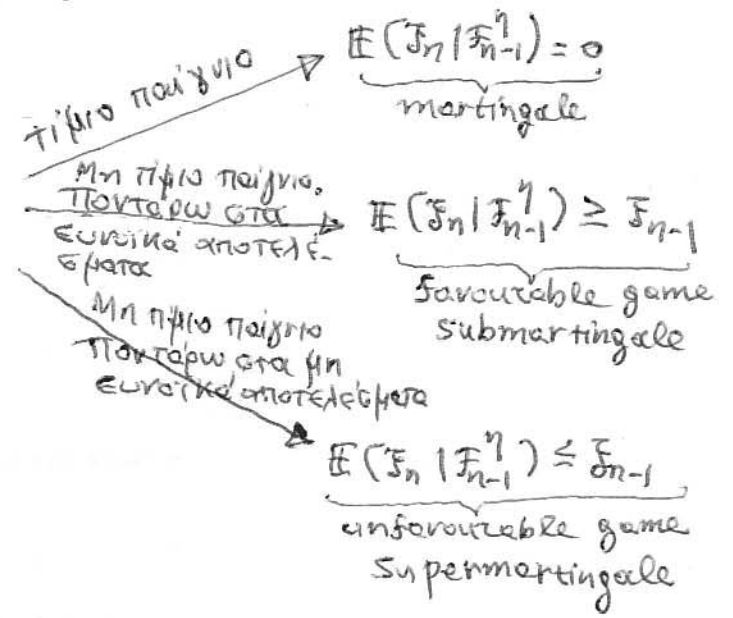 τίμιο παίγνιο
𝔼(ξₙ | 𝓕ⁿₙ₋₁) = 0
martingale
Μη τίμιο παίγνιο.
Ποντάρω στα
ευνοϊκά αποτελέ-
σματα
𝔼(ξₙ | 𝓕ⁿₙ₋₁) ≥ ξₙ₋₁
favourable game
submartingale
Μη τίμιο παίγνιο
Ποντάρω στα μη
ευνοϊκά αποτελέσματα
𝔼(ξₙ | 𝓕ⁿₙ₋₁) ≤ ξₙ₋₁
unfavourable game
supermartingale